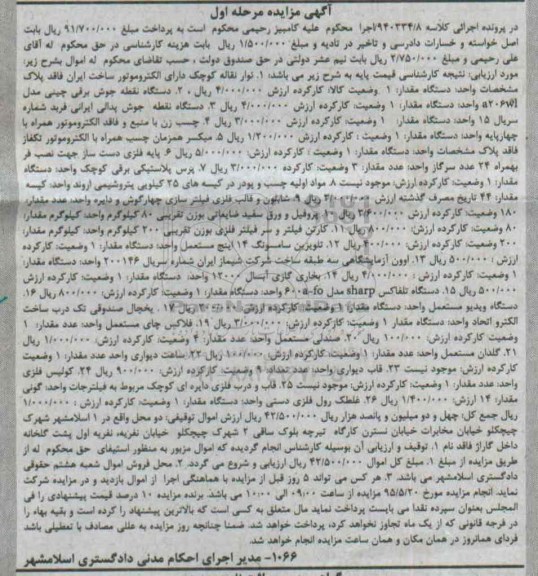 آگهی مزایده مرحله اول
در پرونده اجرائی کلاسه ۹۴۰۳۳۴/۸/اجرا محکوم علیه کامبیز رحیمی محکوم است به پرداخت مبلغ ۹۱/۷۰۰/۰۰۰ ریال بابت
اصل خواسته و خسارات دادرسی و تاخیر در تادیه و مبلغ ۱/۵۰۰/۰۰۰ ریال بابت هزینه کارشناسی در حق محکوم له آقای
علی رحیمی و مبلغ ۲/۷۵۰/۰۰۰ ریال بابت نیم عشر دولتی در حق صندوق دولت ، حسب تقاضای محکوم له اموال بشرح زیر:
مورد ارزیابی: نتیجه کارشناسی قیمت پایه به شرح زیر می باشد: ۱. نوار نقاله کوچک دارای الکتروموتور ساخت ایران فاقد پلاک
مشخصات واحد: دستگاه مقدار: ۱ وضعیت کالا: کارکرده ارزش ۴/۰۰۰/۰۰۰ ریال . ۲. دستگاه نقطه جوش برقی چینی مدل
واحد: دستگاه مقدار: ۱ وضعیت: کارکرده ارزش: ۴/۰۰۰/۰۰۰ ریال ۳. دستگاه نقطه جوش پدالی ایرانی فرید شماره
سریال ۱۵ واحد: دستگاه مقدار: ۱ وضعیت: کارکرده ارزش: ۳/۰۰۰/۰۰۰ ریال ۴. چسب زن با منبع و فاقد الکتروموتور همراه با
چهارپایه واحد: دستگاه مقدار: ۱ وضعیت : کارکرده ارزش: ۱/۲۰۰/۰۰۰ ریال ۵. میکسر همزمان چسب همراه با الکتروموتور تکفاز
فاقد پلاک مشخصات واحد: دستگاه مقدار: ۱ وضعیت : کارکرده ارزش: ۵/۰۰۰/۰۰۰ ریال ۶. پایه فلزی دست ساز جهت نصب فر
بهمراه ۲۴ عدد سرگاز واحد: عدد مقدار: ۳ وضعیت: کارکرده ۳/۰۰۰/۰۰۰ ریال ۷. پرس پلاستیکی برقی کوچک واحد: دستگاه
مقدار: ۱ وضعیت: کارکرده ارزش: موجود نیست ۸. مواد اولیه چسب و پودر در کیسه های ۲۵ کیلویی پتروشیمی اروند واحد: کیسه
مقدار: ۴۴ تاریخ مصرف گذشته ارزش ریال ۹. شابلون و قالب فلزی فیلتر سازی چهارگوش و دایره واحد: عدد مقدار:
۱۸۰ وضعیت: کارکرده ارزش: ۳/۶۰۰/۰۰۰ ریال ۱۰. پروفیل و ورق سفید ضایعاتی بوزن تقریبی ۸۰ کیلوگرم واحد: کیلوگرم مقدار:
۸۰ وضعیت: کارکرده ارزش: ۸۰۰/۰۰۰ ریال ۱۱. کارتن فیلتر و سر فیلتر فلزی بوزن تقریبی ۲۰۰ کیلوگرم واحد: کیلوگرم مقدار:
۲۰۰ وضعیت: کارکرده ارزش: ریال ۱۲. تلویزین سامسونگ ۱۴ اینچ مستعمل واحد: دستگاه مقدار: ۱ وضعیت: کارکرده
ارزش : ۵۰۰/۰۰۰ ریال ۱۳. اوون آزمایشگاهی سه طبقه ساخت شرکت شیماز ایران شماره سریال ۲۰۰۱۴۶ واحد: دستگاه مقدار:
۱ وضعیت: کارکرده ارزش : ۴/۰۰۰/۰۰۰ ریال ۱۴. بخاری گازی آبسال ۱۲۰۰۰ واحد: دستگاه مقدار: ۱ وضعیت: کارکرده ارزش:
۵۰۰/۰۰۰ ریال ۱۵. دستگاه تلفاکس sharp مدل واحد: دستگاه مقدار: ۱ وضعیت: کارکرده ارزش: ۸۰۰/۰۰۰ ریال ۱۶.
دستگاه ویدیو مستعمل واحد: دستگاه مقدار: ۱ وضعیت: کارکرده ارزش: ریال ۱۷. یخچال صندوقی تک درب ساخت
الکترو اتحاد واحد: دستگاه مقدار ۱ وضعیت: کارکرده ارزش: ۳/۰۰۰/۰۰۰ ریال ۱۹. فلاکس چای مستعمل واحد: عدد مقدار: ۱
وضعیت کارکرده ارزش: ۱۰۰/۰۰۰ ریال ۲۰. صندلی مستعمل واحد: عدد مقدار: ۴ وضعیت: کارکرده ارزش: ۱/۰۰۰/۰۰۰ ریال
۲۱. گلدان مستعمل واحد: عدد مقدار: ۱ وضعیت: کارکرده ارزش: ۱۰۰/۰۰۰ ریال ۲۲. ساعت دیواری واحد: عدد مقدار: ۱ وضعیت:
کارکرده ارزش: موجود نیست ۲۳. قاب دیواری واحد: عدد تعداد: ۹ وضعیت: کارکرده ارزش: ۹۰۰/۰۰۰ ریال ۲۴. کولیس فلزی
واحد: عدد مقدار: ۱ وضعیت: کارکرده ارزش: موجود نیست ۲۵. قاب و درب فلزی دایره ای کوچک مربوط به فیلترجات واحد: گونی
مقدار: ۱۴ ارزش: ۱/۴۰۰/۰۰۰ ریال ۲۶. غلطک رول فلزی دستی واحد: دستگاه مقدار: ۱ وضعیت: کارکرده ارزش : ۱/۰۰۰/۰۰۰
ریال جمع کل: چهل و دو میلیون و پانصد هزار ریال ۴۲/۵۰۰/۰۰۰ ریال ارزش اموال توقیفی: دو محل واقع در ۱ اسلامشهر شهرک
چیچکلو خیابان مخابرات خیابان نسترن کارگاه تیرچه بلوک ساقی ۲ شهرک چیچکلو خیابان نفریه، نفریه اول پشت گلخانه
داخل گاراژ فاقد نام ۱. توقیف و ارزیابی آن بوسیله کارشناس انجام گردیده که اموال مزبور به منظور استیفای حق محکوم له از
طریق مزایده از مبلغ ۱. مبلغ کل اموال ۴۲/۵۰۰/۰۰۰ ریال ارزیابی و شروع می گردد. ۲. محل فروش اموال شعبه هشتم حقوقی
دادگستری اسلامشهر می باشد. ۳. هر کس می تواند ۵ روز قبل از مزایده با هماهنگی اجرا از اموال بازدید و در مزایده شرکت
نماید. انجام مزایده مورخ ۹۵/۵/۲۰ مزایده از ساعت ۰۹:۰۰ الی ۱۰:۰۰ می باشد. برنده مزایده ۱۰ درصد قیمت پیشنهادی را فی
المجلس بعنوان سپرده نقدا می بایست پرداخت نماید مال متعلق به کسی است که بالاترین پیشنهاد را کرده است و بقیه بهاء را
در فرجه قانونی که از یک ماه تجاوز نخواهد کرد، پرداخت خواهد شد. ضمنا چنانچه روز مزایده به عللی مصادف با تعطیلی باشد
فردای همانروز در همان مکان و همان ساعت مزایده انجام خواهد شد.
۱۰۶۶- مدیر اجرای احکام مدنی دادگستری اسلامشهر